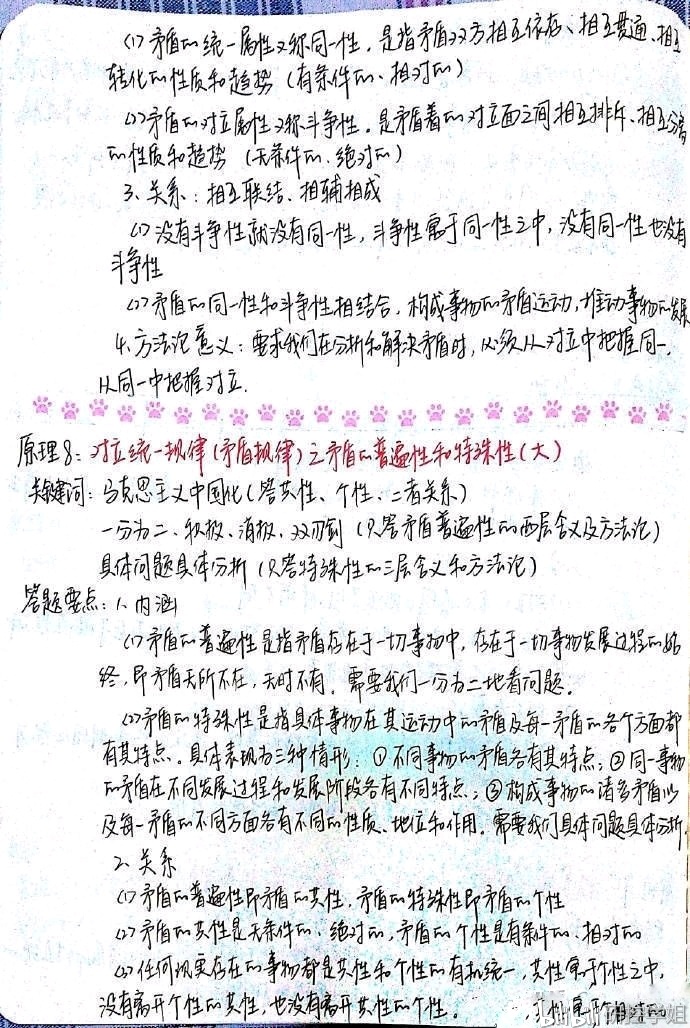 (1) 矛盾的统一属性又称同一性，是指矛盾双方相互依存、相互贯通、相互
转化的性质和趋势（有条件的、相对的）
(2) 矛盾的对立属性又称斗争性，是矛盾着的对立面之间相互排斥、相互分离
的性质和趋势（无条件的、绝对的）
3、关系：相互联结、相辅相成
(1) 没有斗争性就没有同一性，斗争性寓于同一性之中，没有同一性也没有
斗争性
(2) 矛盾的同一性和斗争性相结合，构成事物的矛盾运动，推动事物的发展
4、方法论意义：要求我们在分析和解决矛盾时，必须从对立中把握同一，
从同一中把握对立.
原理8：对立统一规律（矛盾规律）之矛盾的普遍性和特殊性（大）
关键词：马克思主义中国化（答共性、个性、二者关系）
一分为二、积极、消极、双刃剑（只答矛盾普遍性的两层含义及方法论）
具体问题具体分析（只答特殊性的三层含义和方法论）
答题要点：1、内涵
(1) 矛盾的普遍性是指矛盾存在于一切事物中，存在于一切事物发展过程的始
终，即矛盾无所不在，无时不有，需要我们一分为二地看问题。
(2) 矛盾的特殊性是指具体事物在其运动中的矛盾及每一矛盾的各个方面都
有其特点。具体表现为三种情形：①不同事物的矛盾各有其特点；②同一事物
的矛盾在不同发展过程和发展阶段各有不同特点；③构成事物的诸多矛盾以
及每一矛盾的不同方面各有不同的性质、地位和作用。需要我们具体问题具体分析.
2、关系
(1) 矛盾的普遍性即矛盾的共性，矛盾的特殊性即矛盾的个性
(2) 矛盾的共性是无条件的、绝对的，矛盾的个性是有条件的、相对的
(3) 任何现实存在的事物都是共性和个性的有机统一，共性寓于个性之中，
没有离开个性的共性，也没有离开共性的个性。